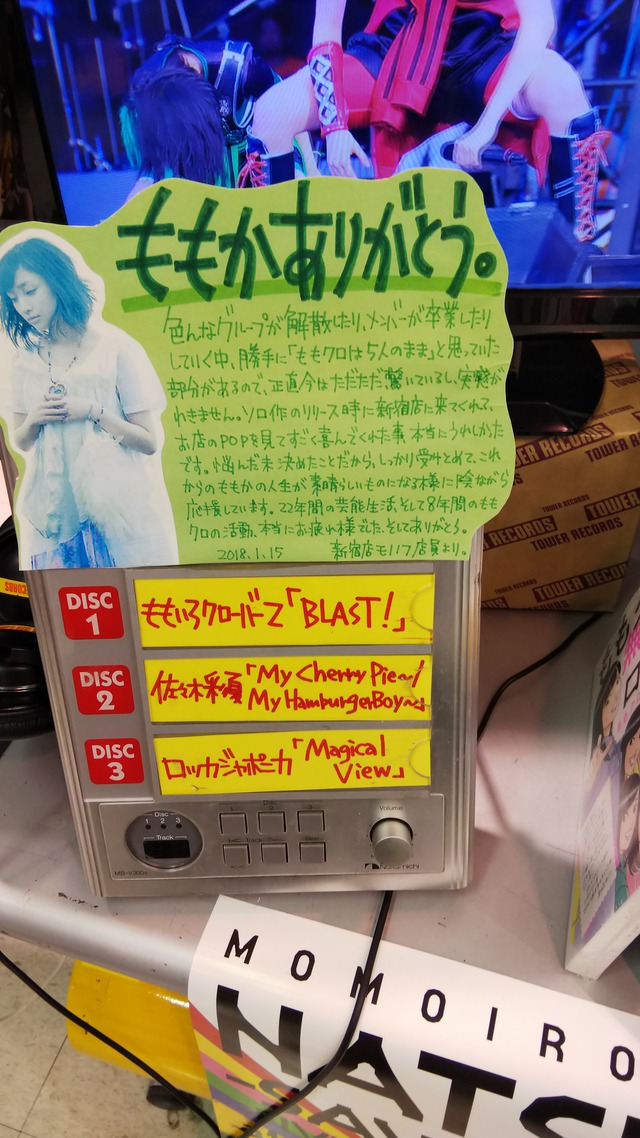 ももかありがとう。
色んなグループが解散したり、メンバーが卒業したり
していく中、勝手に「ももクロは5人のまま」と思っていた
部分があるので、正直今はただただ驚いているし、実感が
わきません。ソロ作のリリース時に新宿店に来てくれる、
お店のPOPを見てすごく喜んでくれた事、本当にうれしかった
です。悩んだ末決めたことだから、しっかり受けとめて、これ
からのももかの人生が素晴らしいものになる様に陰ながら
応援しています。22年間の芸能生活、そして8年間のもも
クロの活動、本当にお疲れ様でした、そしてありがとう。
2018.1.15 新宿店モノノフ店員より。
DISC 1
ももいろクローバーZ「BLAST!」
DISC 2
佐々木彩夏「My Cherry Pie~/
My Hamburger Boy~」
DISC 3
ロッカジャポニカ「Magical
View」
Disc
1 2 3
Track
Disc
1 2 3
Track
Volume
Nakamichi
TOWER RECORDS
TOWER RECORDS
TOWER RECORDS
TOWER RECORDS
MOMOIRO